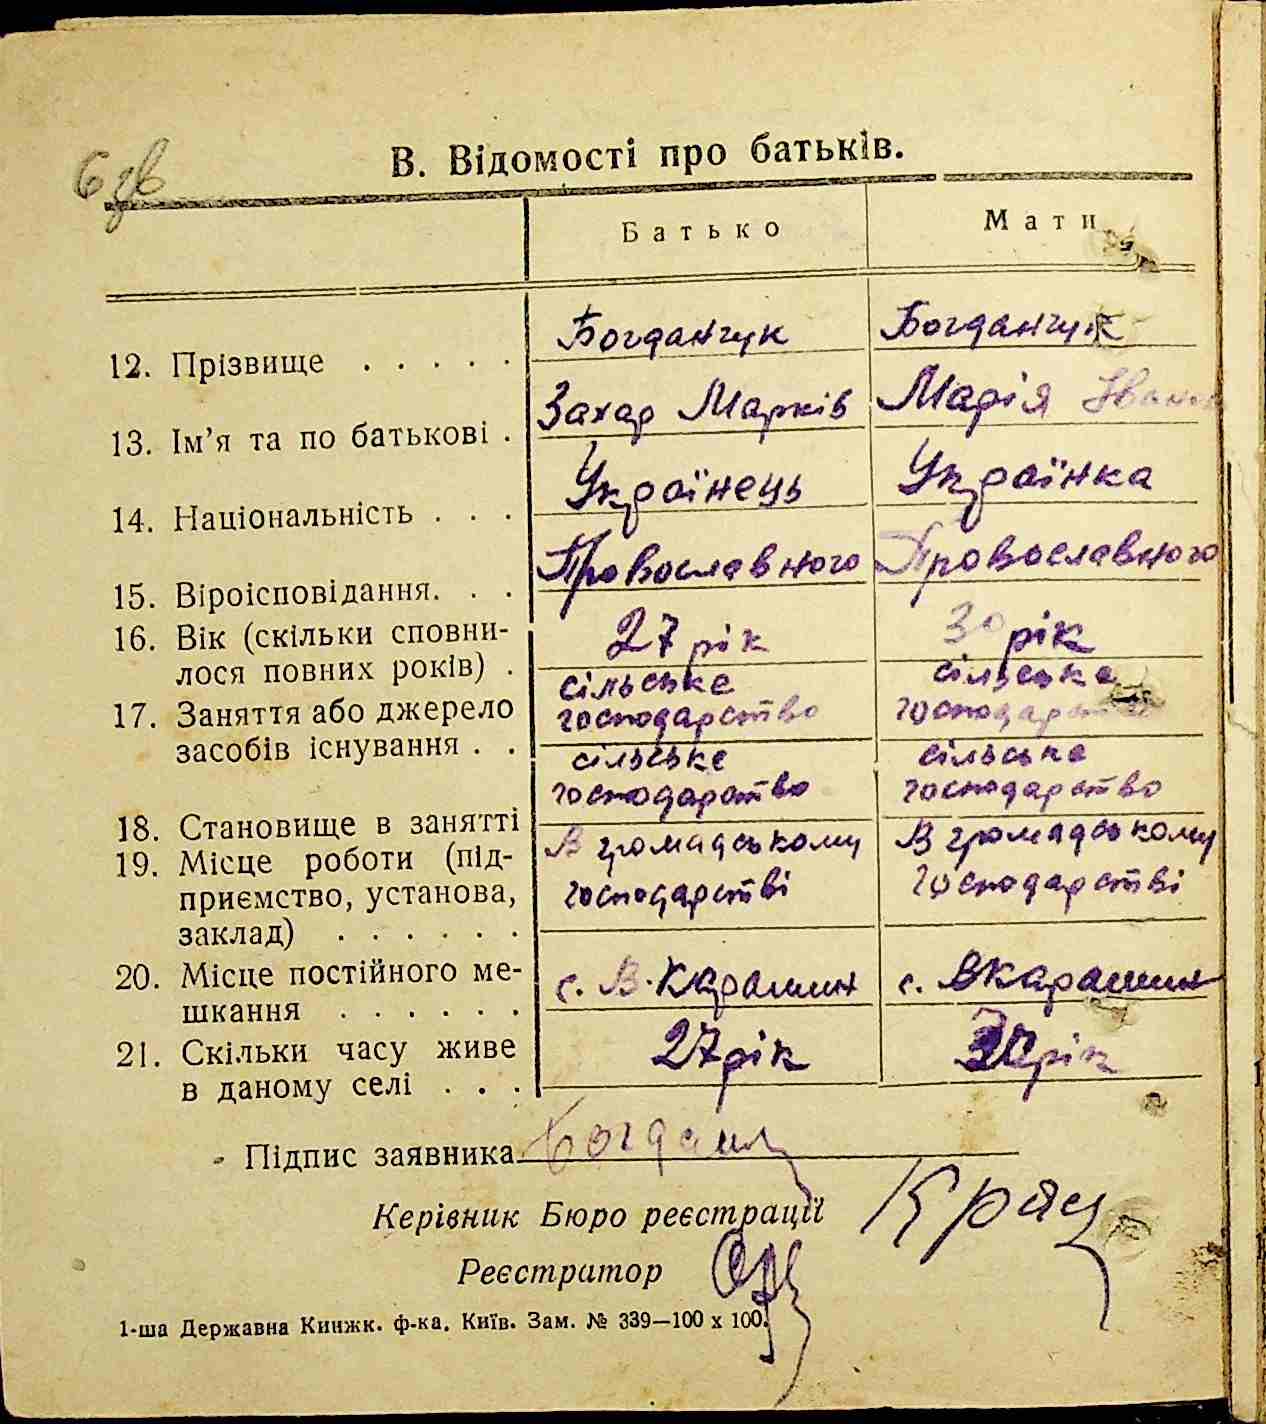 6 зв
В. Відомості про батьків.
Батько Мати
12. Прізвище . . . . . Богданчук Богданчук
13. Ім’я та по батькові . Захар Марків Марія Іванів
14. Національність . . . Українець Українка
15. Віроісповідання. . . Провославного Провославного
16. Вік (скільки сповни-
лося повних років) . 27 рік 30 рік
17. Заняття або джерело сільське сільська
засобів існування . . господарство господарство
сільське сільська
18. Становище в занятті господарство господарство
19. Місце роботи (під- В громадському В громадському
приємство, установа, господарстві господарстві
заклад) . . . . . .
20. Місце постійного ме- с. В. Карашин с. ВКарашин
шкання . . . . . .
21. Скільки часу живе 27 рік 30 рік
в даному селі . . .
Підпис заявника
Керівник Бюро реєстрації
Реєстратор
1-ша Державна Книжк. ф-ка. Київ. Зам. № 339—100 x 100.